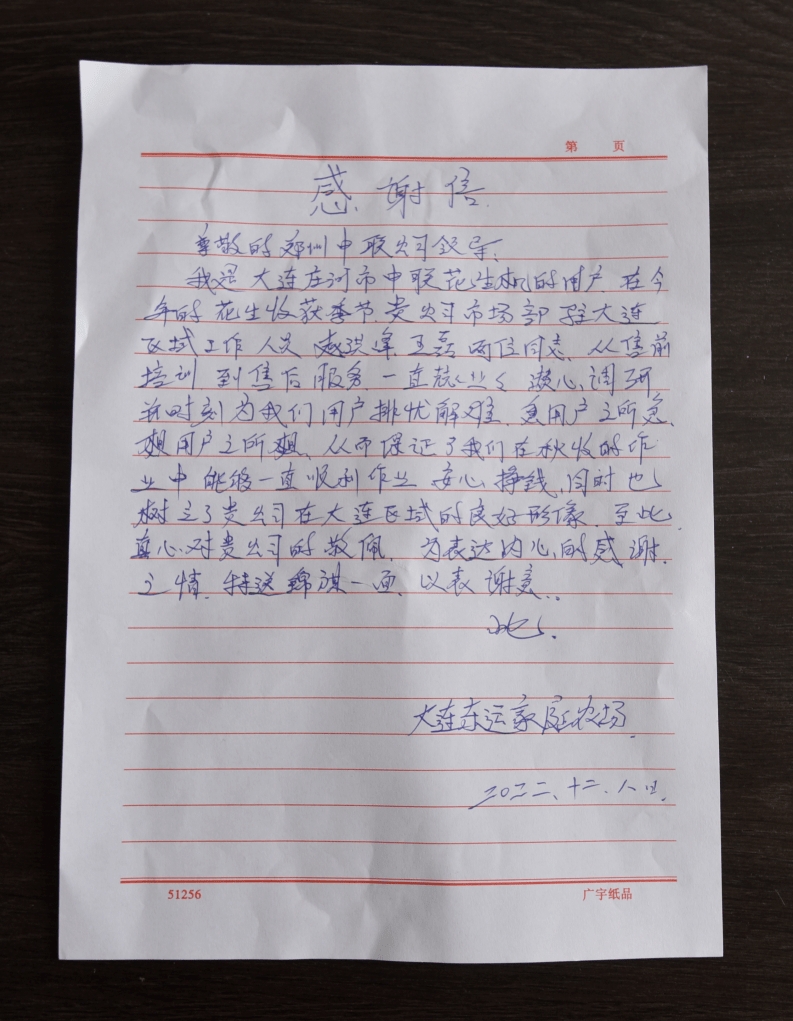 第 页
感谢信
尊敬的郑州中联公司领导:
我是大连庄河市中联花生机的用户.在今
年的花生收获季节.贵公司市场部驻大连
区域工作人员 洪峰.王磊两位同志.从售前
培训.到售后服务.一直兢兢业业.潜心调研
并时刻为我们用户排忧解难.急用户之所急.
想用户之所想.从而保证了我们在秋收的作
业中能够一直顺利作业 安心挣钱.同时也
树立了贵公司在大连区域的良好形像.至此
真心对贵公司的敬佩.为表达内心的感谢.
之情.特送锦旗一面.以表谢意..
此.
大连东运家庭农场.
二0二二、十二.八日.
51256
广宇纸品